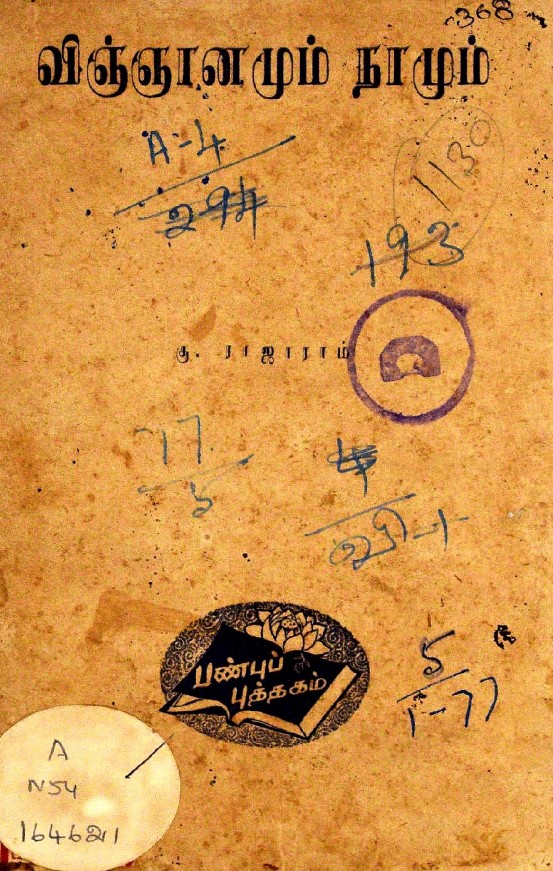 368
விஞ்ஞானமும் நாமும்
A-4
294
1130
193
கு. ராஜாராம்
77
5
வி-1
பண்புப்
புத்தகம்
5
1-77
A
N54
164621